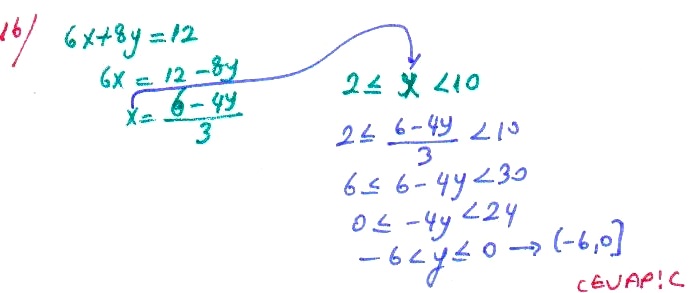 16/
6x+8y=12
6x = 12-8y
x = 6-4y / 3
2 ≤ x < 10
2 ≤ 6-4y / 3 < 10
6 ≤ 6-4y < 30
0 ≤ -4y < 24
-6 < y ≤ 0 → (-6,0]
CEVAP!C